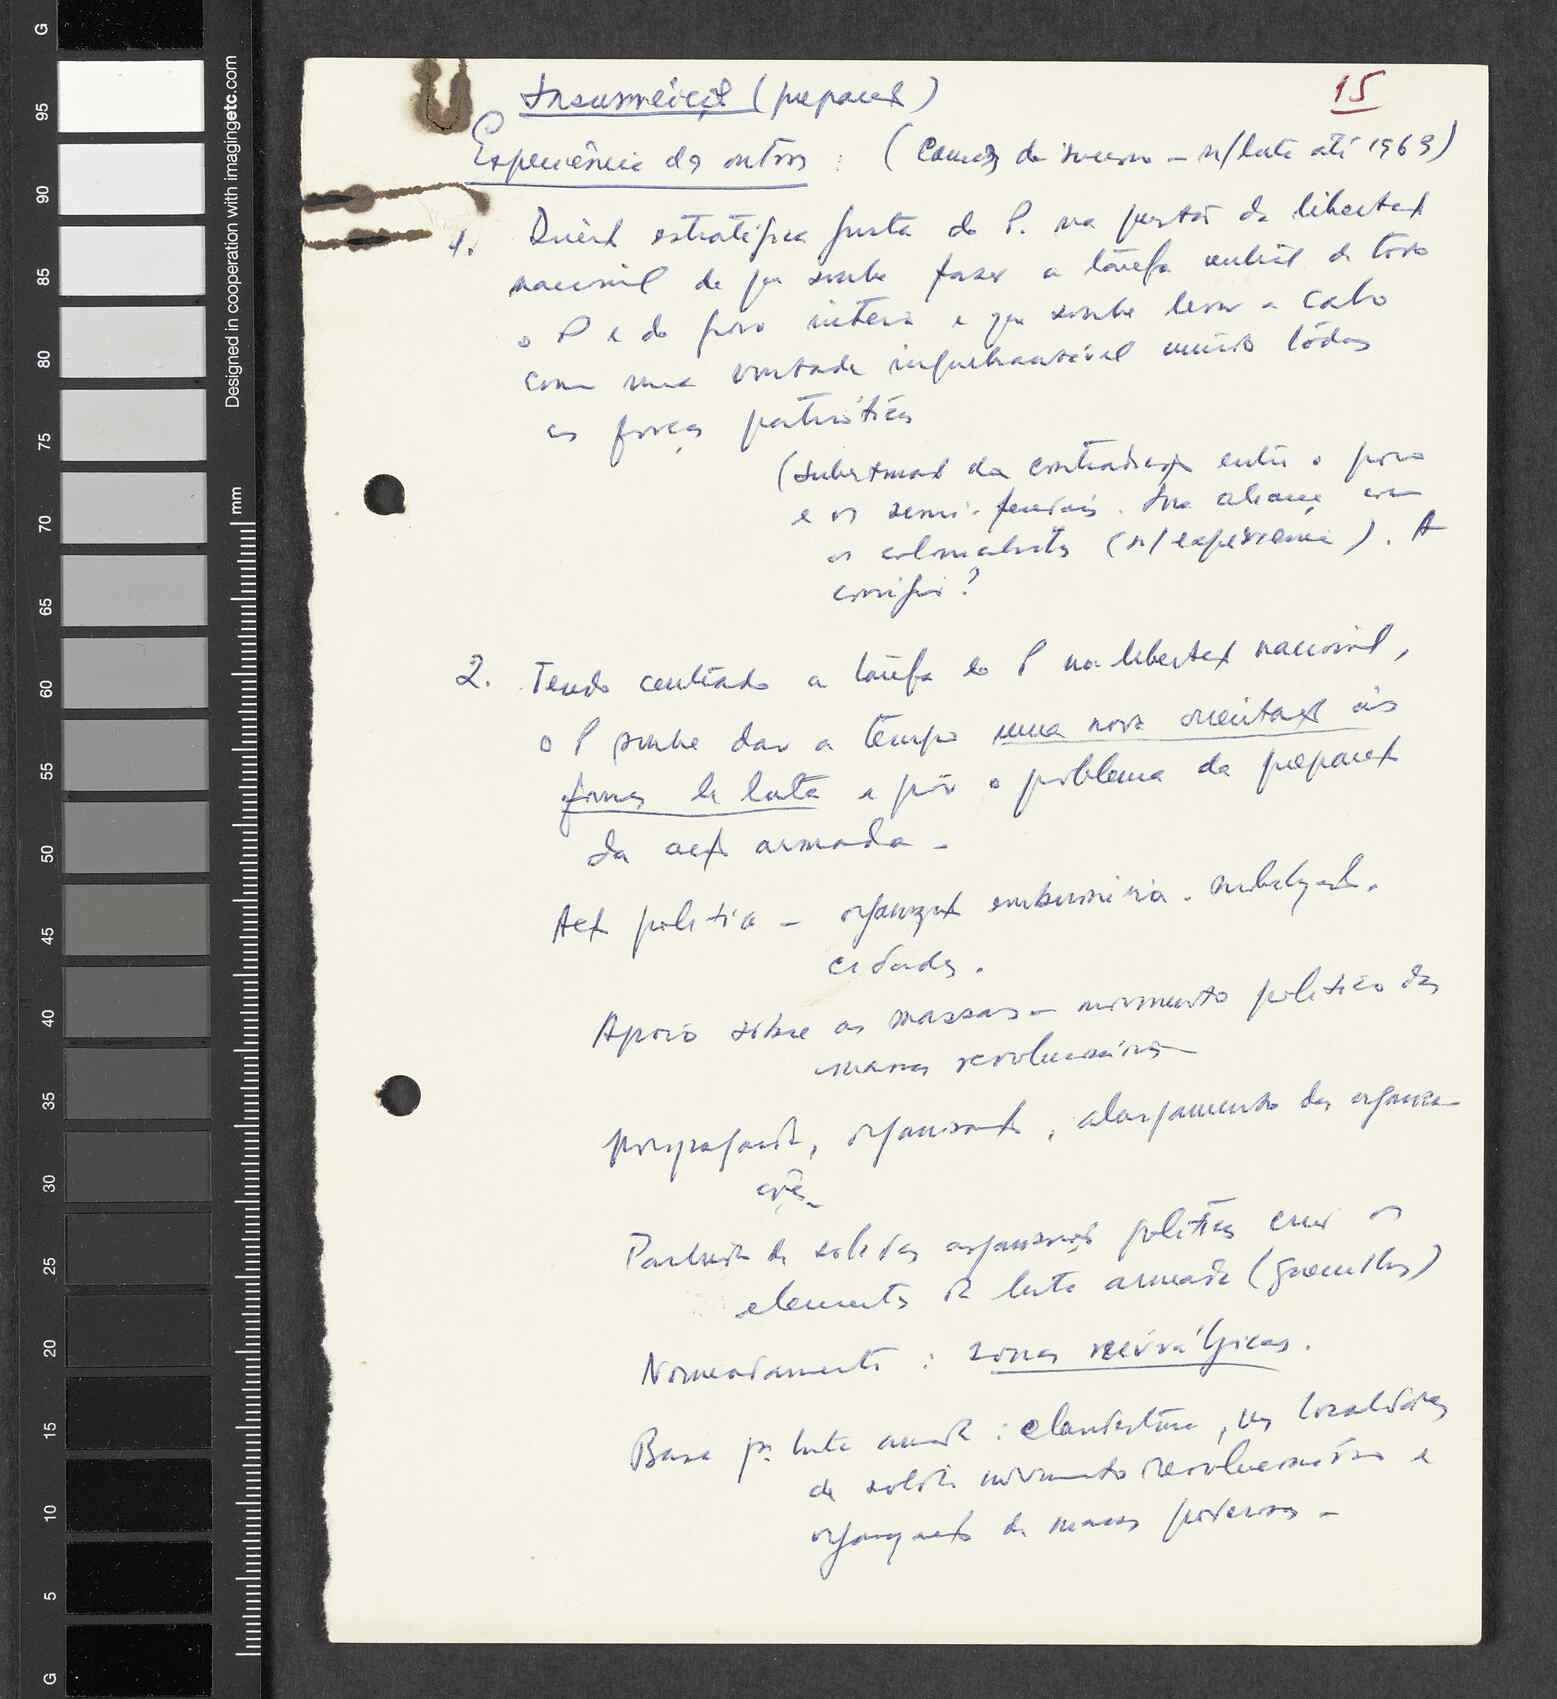 Insurreição (preparação)
15
Experiência dos outros : (Causas do sucesso – n/luta até 1969)
1. Direcção estratégica justa do P. na questão da libertação
nacional de que soube fazer a tarefa central de todo
o P e do povo inteiro e que soube levar a cabo
com uma vontade inquebrantável unindo tôdas
as forças patrióticas
(subestimação da contradição entre o povo
e os semi-feudais. Sua aliança com
os colonialistas (n/experiência). A
corrigir?
2. Tendo centrado a tarefa do P na libertação nacional,
o P soube dar a tempo uma nova orientação às
formas de luta e pôr o problema da preparação
da acção armada –
Acção política – organização embrionária.
cidades.
Apoio sôbre as massas – movimento político das
massas revolucionário –
Propaganda, organização, alargamento das organiza-
ções –
Partindo de sólidas organizações políticas criar os
elementos da luta armada (guerrilhas)
Nomeadamente : zonas nevrálgicas.
Base p.ª luta armada : clandestina, nas localidades
de sólido movimento revolucionário e
organização de massas poderosas –
Designed in cooperation with imagingetc.com
mm
G
95
90
85
80
75
70
65
60
55
50
45
40
35
30
25
20
15
10
5
G